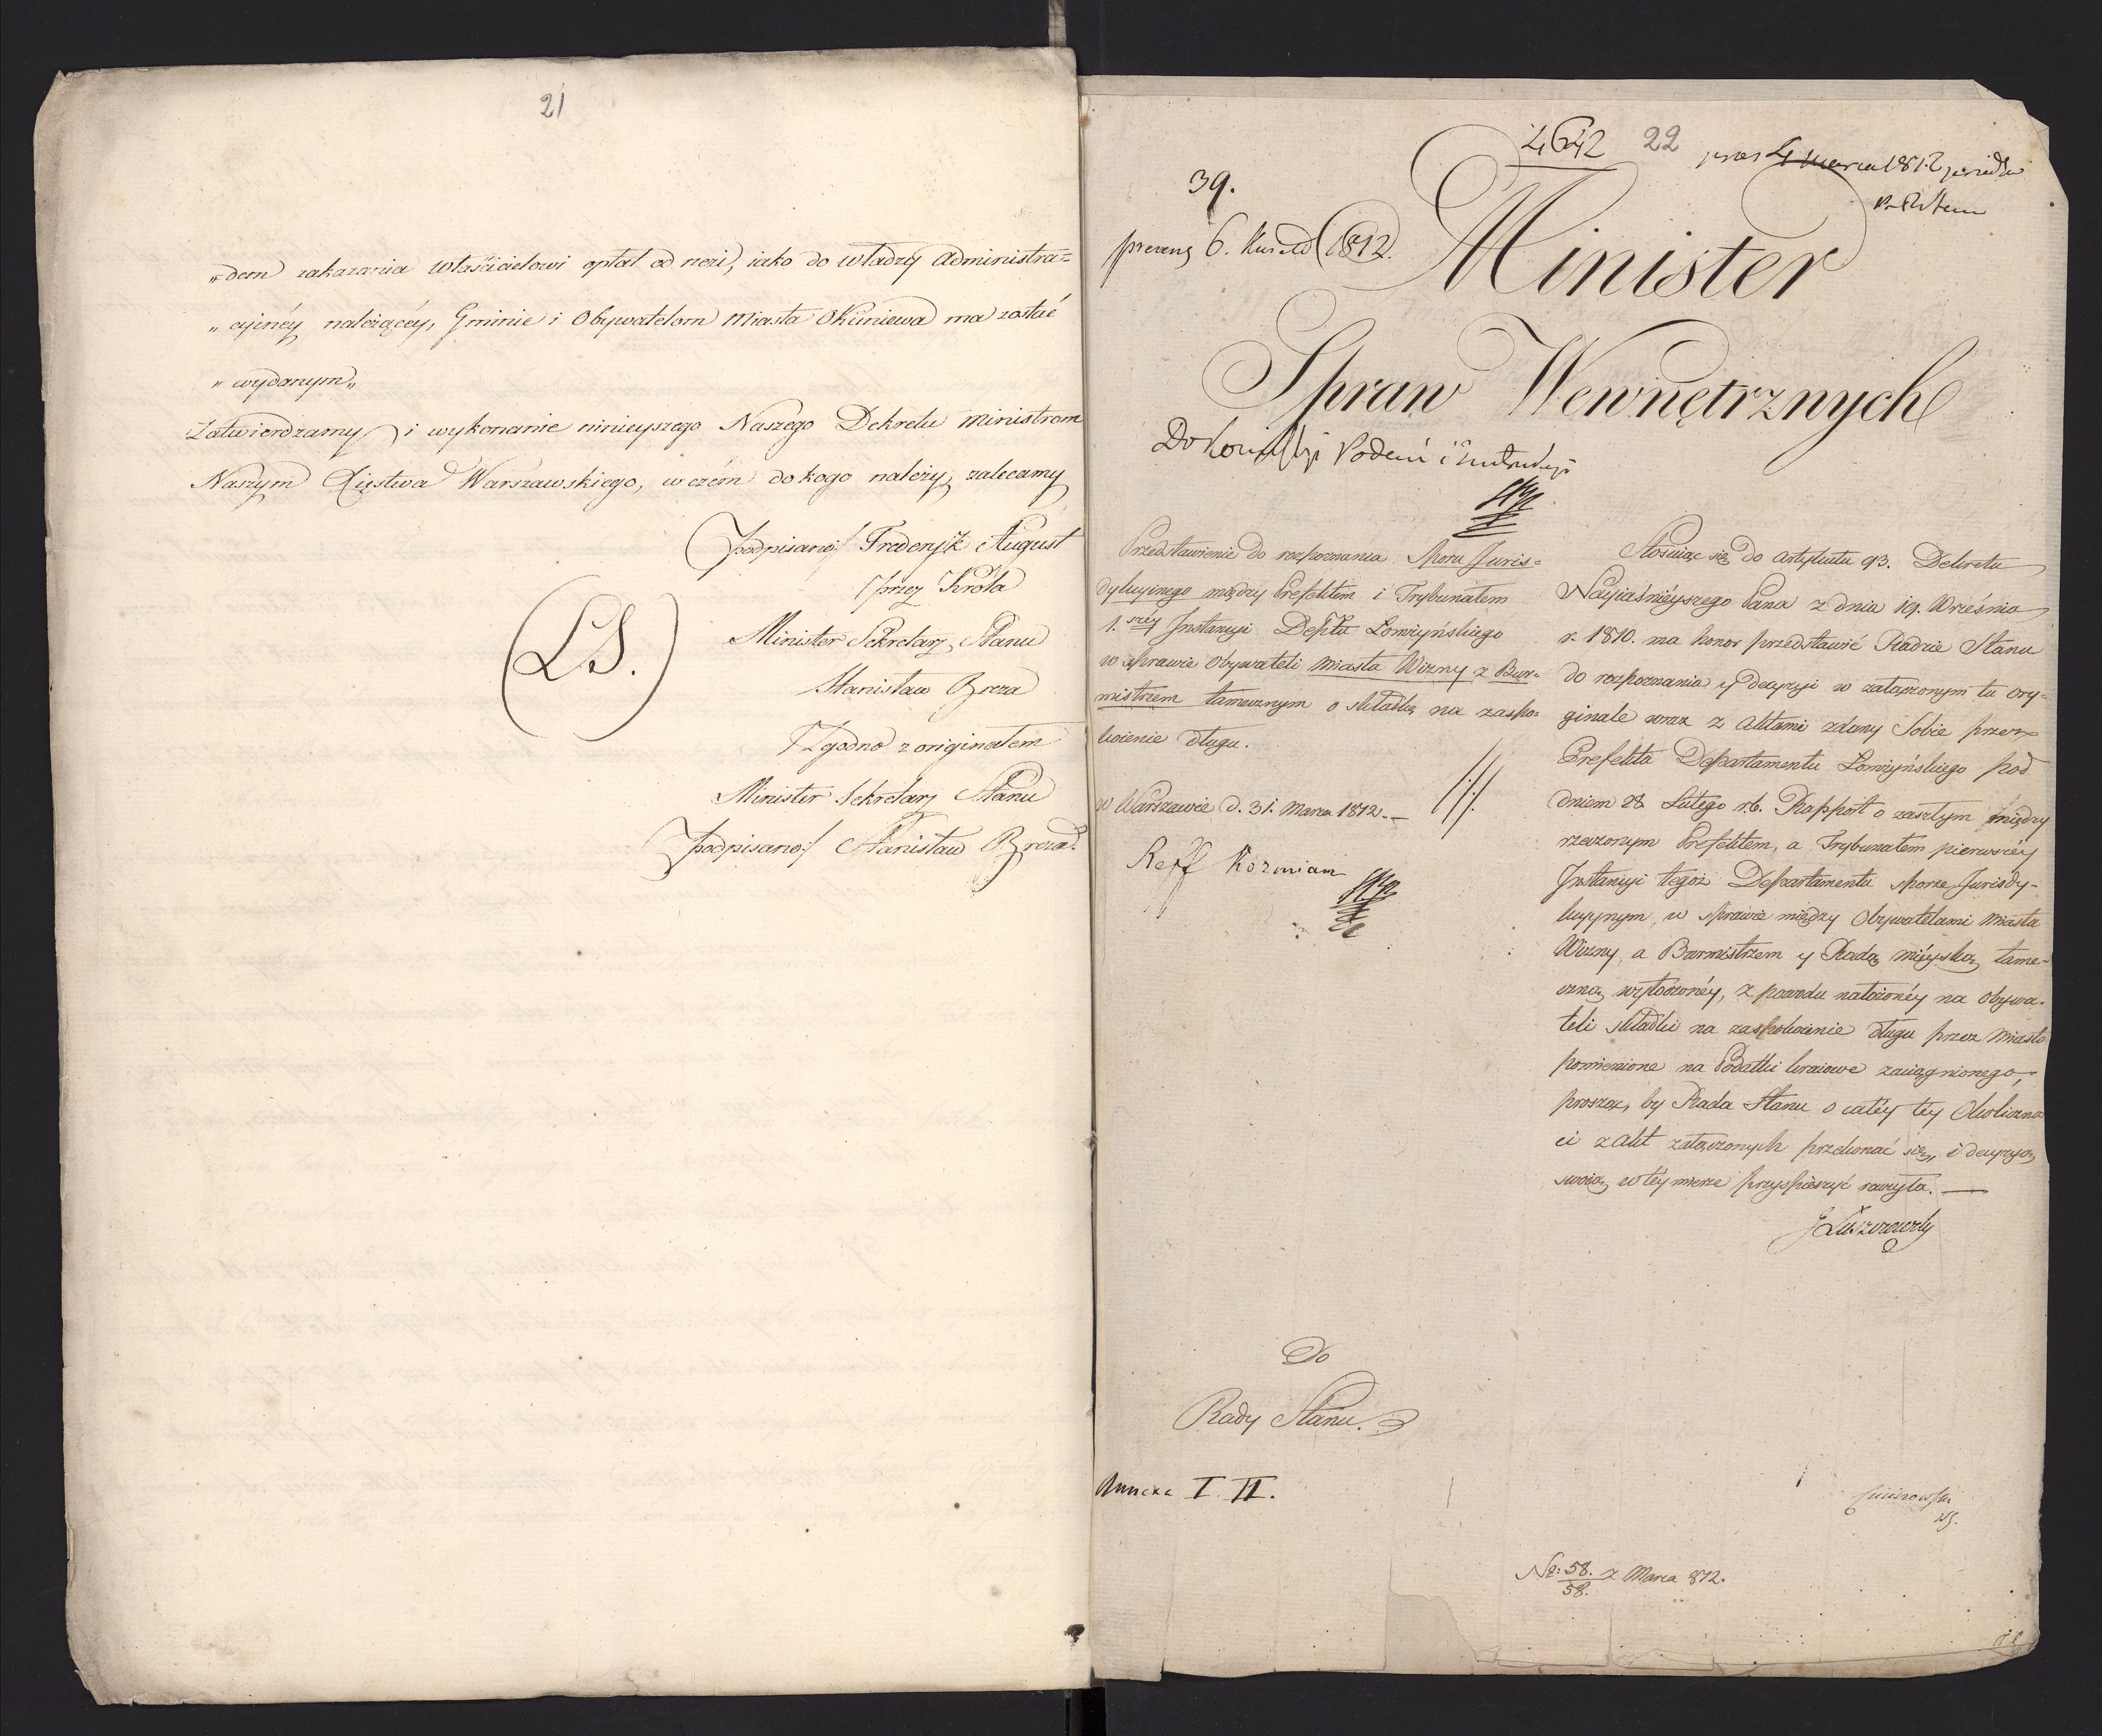 21
„dem zakazania właścicielowi opłat od rzezi, iako do władzy administra=
„cyinéy należącéy, Gminie i Obywatelom Miasta Okuniewa ma zostać
„wydanym„
Zatwierdzamy, i wykonanie ninieyszego Naszego Dekretu Ministrom
Naszym Xięstwa Warszawskiego, w czém do kogo należy, zalecamy
/podpisano:/ Frederyk August
przez Króla
Minister Sekretarz Stanu
Stanisław Breza
(LS.)
Zgodno z originałem
Minister Sekretarz Stanu
/podpisano:/ Stanisław Breza.
4642 22
4 marca 1812
39.
6. 1812.
Minister
Spraw Wewnętrznych
Do Podań i
Przedstawienie do rozpoznania Sporu Juris=
dykcyinego między Prefektem i Trybunałem
1. szey Instancyi Deptu Łomżyńskiego
w sprawie Obywateli miasta Wizny z Bur=
mistrzem tamecznym o składkę na zaspo=
koienie długu.
w Warszawie d. 31. Marca 1812. —
Reff Kozmian
Stosuiąc się do artykułu 93. Dekretu
Nayiaśnieyszego Pana z dnia 19. Września
r. 1810. ma honor przedstawić Radzie Stanu
do rozpoznania y decyzyi w załączonym tu ory-
ginale wraz z aktami zdany Sobie przez
Prefekta Departamentu Łomżyńskiego pod
dniem 28 Lutego r.b. Rapport o zaszłym między
rzeczonym Prefektem, a Trybunałem pierwszéy
Instancyi tegoż Departamentu sporze Jurisdy-
kcyinym, w sprawie między Obywatelami Miasta
Wizny, a Burmistrzem y Radą mieyską tame-
czną wytoczonéy, z powodu nałożonéy na obywa-
teli składki na zaspokoienie długu przez Miasto
pomienione na Podatki kraiowe zaciągnionego,
prosząc, by Rada Stanu o całéy tey Okoliczno-
ci z akt załączonych przekonać się, i decyzyą
swoią w téy mierze przyspieszyć raczyła. —
J Łuszczewsky
Do
Rady Stanu.
Annexa I. II.
No: 58./58. z Marca 812.